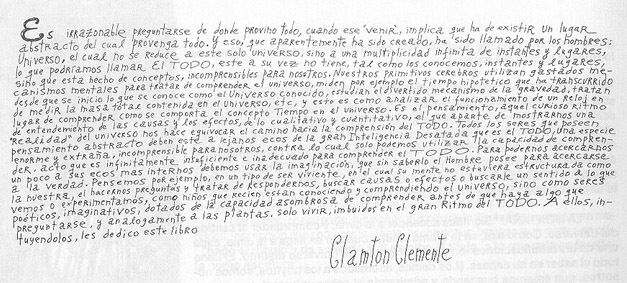 Es irrazonable preguntarse de donde provino todo, cuando ese 'venir', implica que ha de existir un lugar
abstracto del cual provenga todo. Y eso, que aparentemente ha sido creado, ha sido llamado por los hombres:
Universo, el cual no se reduce a este solo universo, sino a una multiplicidad infinita de instantes y lugares,
lo que podríamos llamar El TODO, este a su vez no tiene, tal como los conocemos, instantes y lugares,
sino que esta hecho de conceptos, incomprensibles para nosotros. Nuestros primitivos cerebros utilizan gastados me-
canismos mentales para tratar de comprender el universo, miden por ejemplo el tiempo hipotetico que ha transcurrido
desde que se inicio lo que se conoce como el Universo conocido, estudian el divertido mecanismo de la gravedad, tratan
de medir la masa total contenida en el universo, etc, y esto es como analizar el funcionamiento de un Reloj en
lugar de comprender como se comporta el concepto Tiempo en el universo. Es el pensamiento, aquel curioso Ritmo
de entendimiento de las causas y los efectos, de lo cualitativo y cuantitativo, el que aparte de mostrarnos una
"realidad" del universo nos hace equivocar el camino hacia la comprensión del TODO. Todos los seres que poseen
pensamiento abstracto deben este a lejanos ecos de la gran Inteligencia Desatada que es el TODO, una especie
enorme y extraña, incomprensible para nosotros, contra lo cual solo podemos utilizar la capacidad de compren-
der, acto que es infinitamente insuficiente e inadecuado para comprender el TODO. Para podernos acercarnos
un poco a sus ecos mas internos debemos usar la imaginación, que sin saberlo el Hombre posee para acercarse
a la verdad. Pensemos por ejemplo, en un tipo de ser viviente, en el cual su mente no estuviera estructurada como
la nuestra, a hacernos preguntas y tratar de respondernos, buscar causas o efectos o buscarle un sentido a lo que
vemos o experimentamos, como niños que recien están conociendo y comprendiendo el universo, sino como seres
poéticos, imaginativos, dotados de la capacidad asombrosa de comprender antes de que haya algo que
preguntarse, y analogamente a las plantas, solo vivir, imbuidos en el gran Ritmo del TODO. A ellos, in-
tuyendolos, les dedico este libro
Clamton Clemente